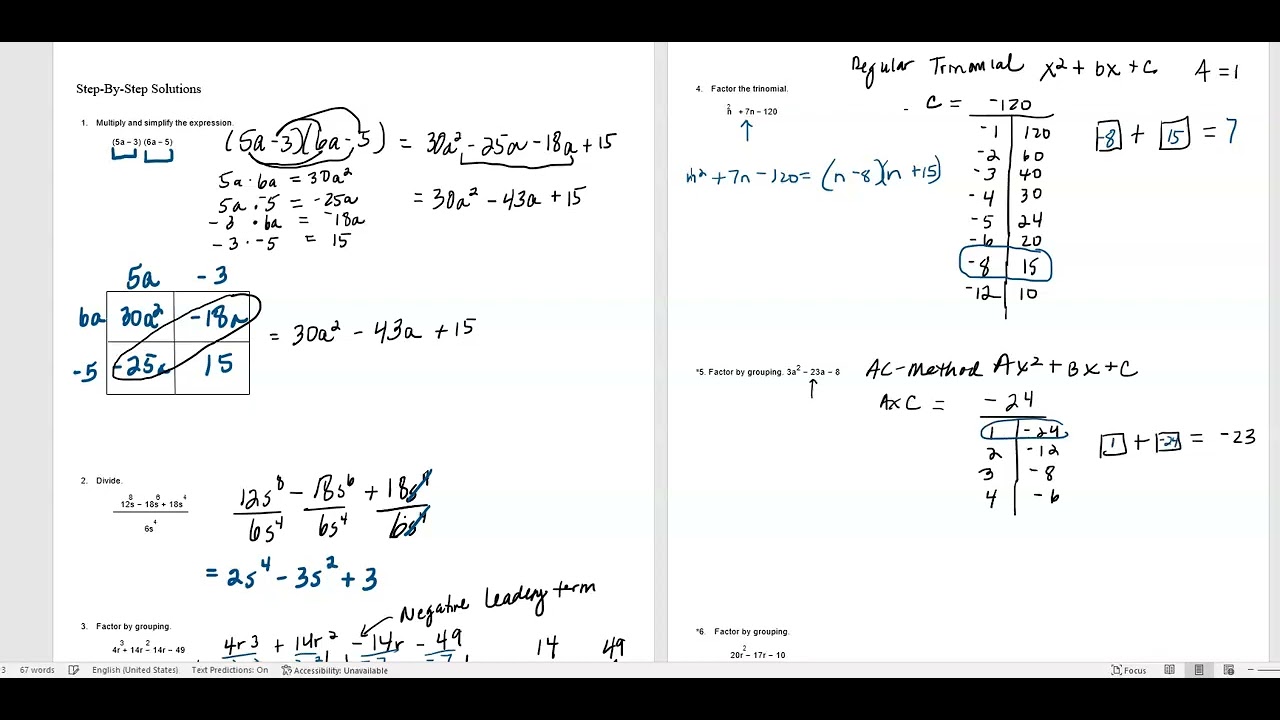 Step-By-Step Solutions
1. Multiply and simplify the expression.
(5a – 3) (6a – 5)
(5a - 3)(6a - 5) = 30a² - 25a - 18a + 15
5a · 6a = 30a²
5a · -5 = -25a
-3 · 6a = -18a
-3 · -5 = 15
= 30a² - 43a + 15
5a -3
6a 30a² -18a
-5 -25a 15
= 30a² - 43a + 15
2. Divide.
12s⁸ – 18s⁶ + 18s⁴
6s⁴
12s⁸ - 18s⁶ + 18s⁴
6s⁴ 6s⁴ 6s⁴
= 2s⁴ - 3s² + 3
Negative leading term
3. Factor by grouping.
4r³ + 14r² – 14r – 49
4r³ + 14r² - 14r - 49 14 49
Regular Trinomial x² + bx + c A = 1
4. Factor the trinomial.
n² + 7n – 120
n² + 7n - 120 = (n - 8)(n + 15)
C = -120
-1 120
-2 60
-3 40
-4 30
-5 24
-6 20
-8 15
-12 10
-8 + 15 = 7
*5. Factor by grouping. 3a² – 23a – 8
AC-Method Ax² + Bx + C
AxC = -24
1 -24
2 -12
3 -8
4 -6
1 + -24 = -23
*6. Factor by grouping.
20r² – 17r – 10
3 67 words English (United States) Text Predictions: On Accessibility: Unavailable Focus